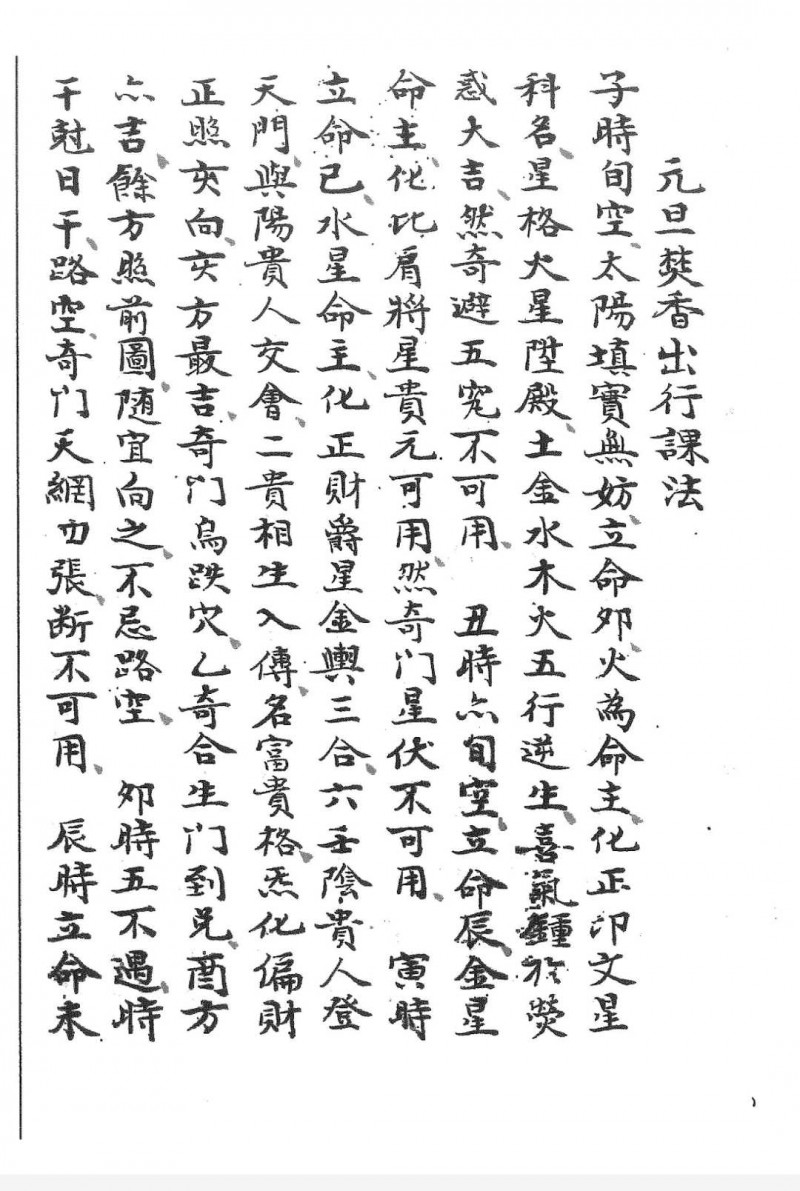 元旦焚香出行課法
子時旬空、太陽填實無妨、立命夘、火為命主、化正印文星
科名、星格火星陞殿、土金水木火五行逆生、喜氣鍾於熒
惑大吉、然奇避五不可用、丑時亦旬空、立命辰、金星
命主、化比肩將星貴元可用、然奇门星伏不可用、寅時
立命巳、水星命主、化正財爵星金輿三合、六壬陰貴人登
天門、與陽貴人交會、二貴相生入傳、名富貴格、炁化偏財
正照亥向亥方最吉、奇门鳥跌穴、乙奇合生门到兑、酉方
亦吉、餘方照前圖随宜向之、不忌路空、夘時五不遇、時
干尅日干、路空、奇门天網四張、断不可用、辰時立命未